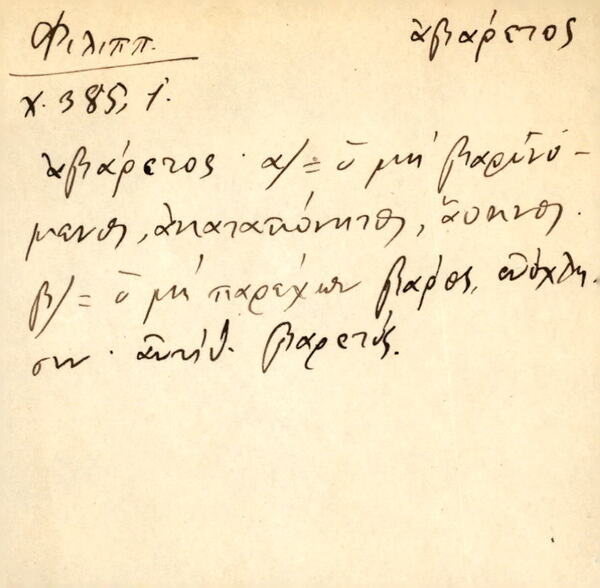 Φιλιππ. ἀβάρετος
χ. 385, 1.
ἀβάρετος · α/ = ὁ μή βαρυνό-
μενος, ἀκαταπόνητος, ἄοκνος.
β/ = ὁ μή παρέχων βάρος, ἐνόχλη-
σιν · ἀντίθ. βαρετός.